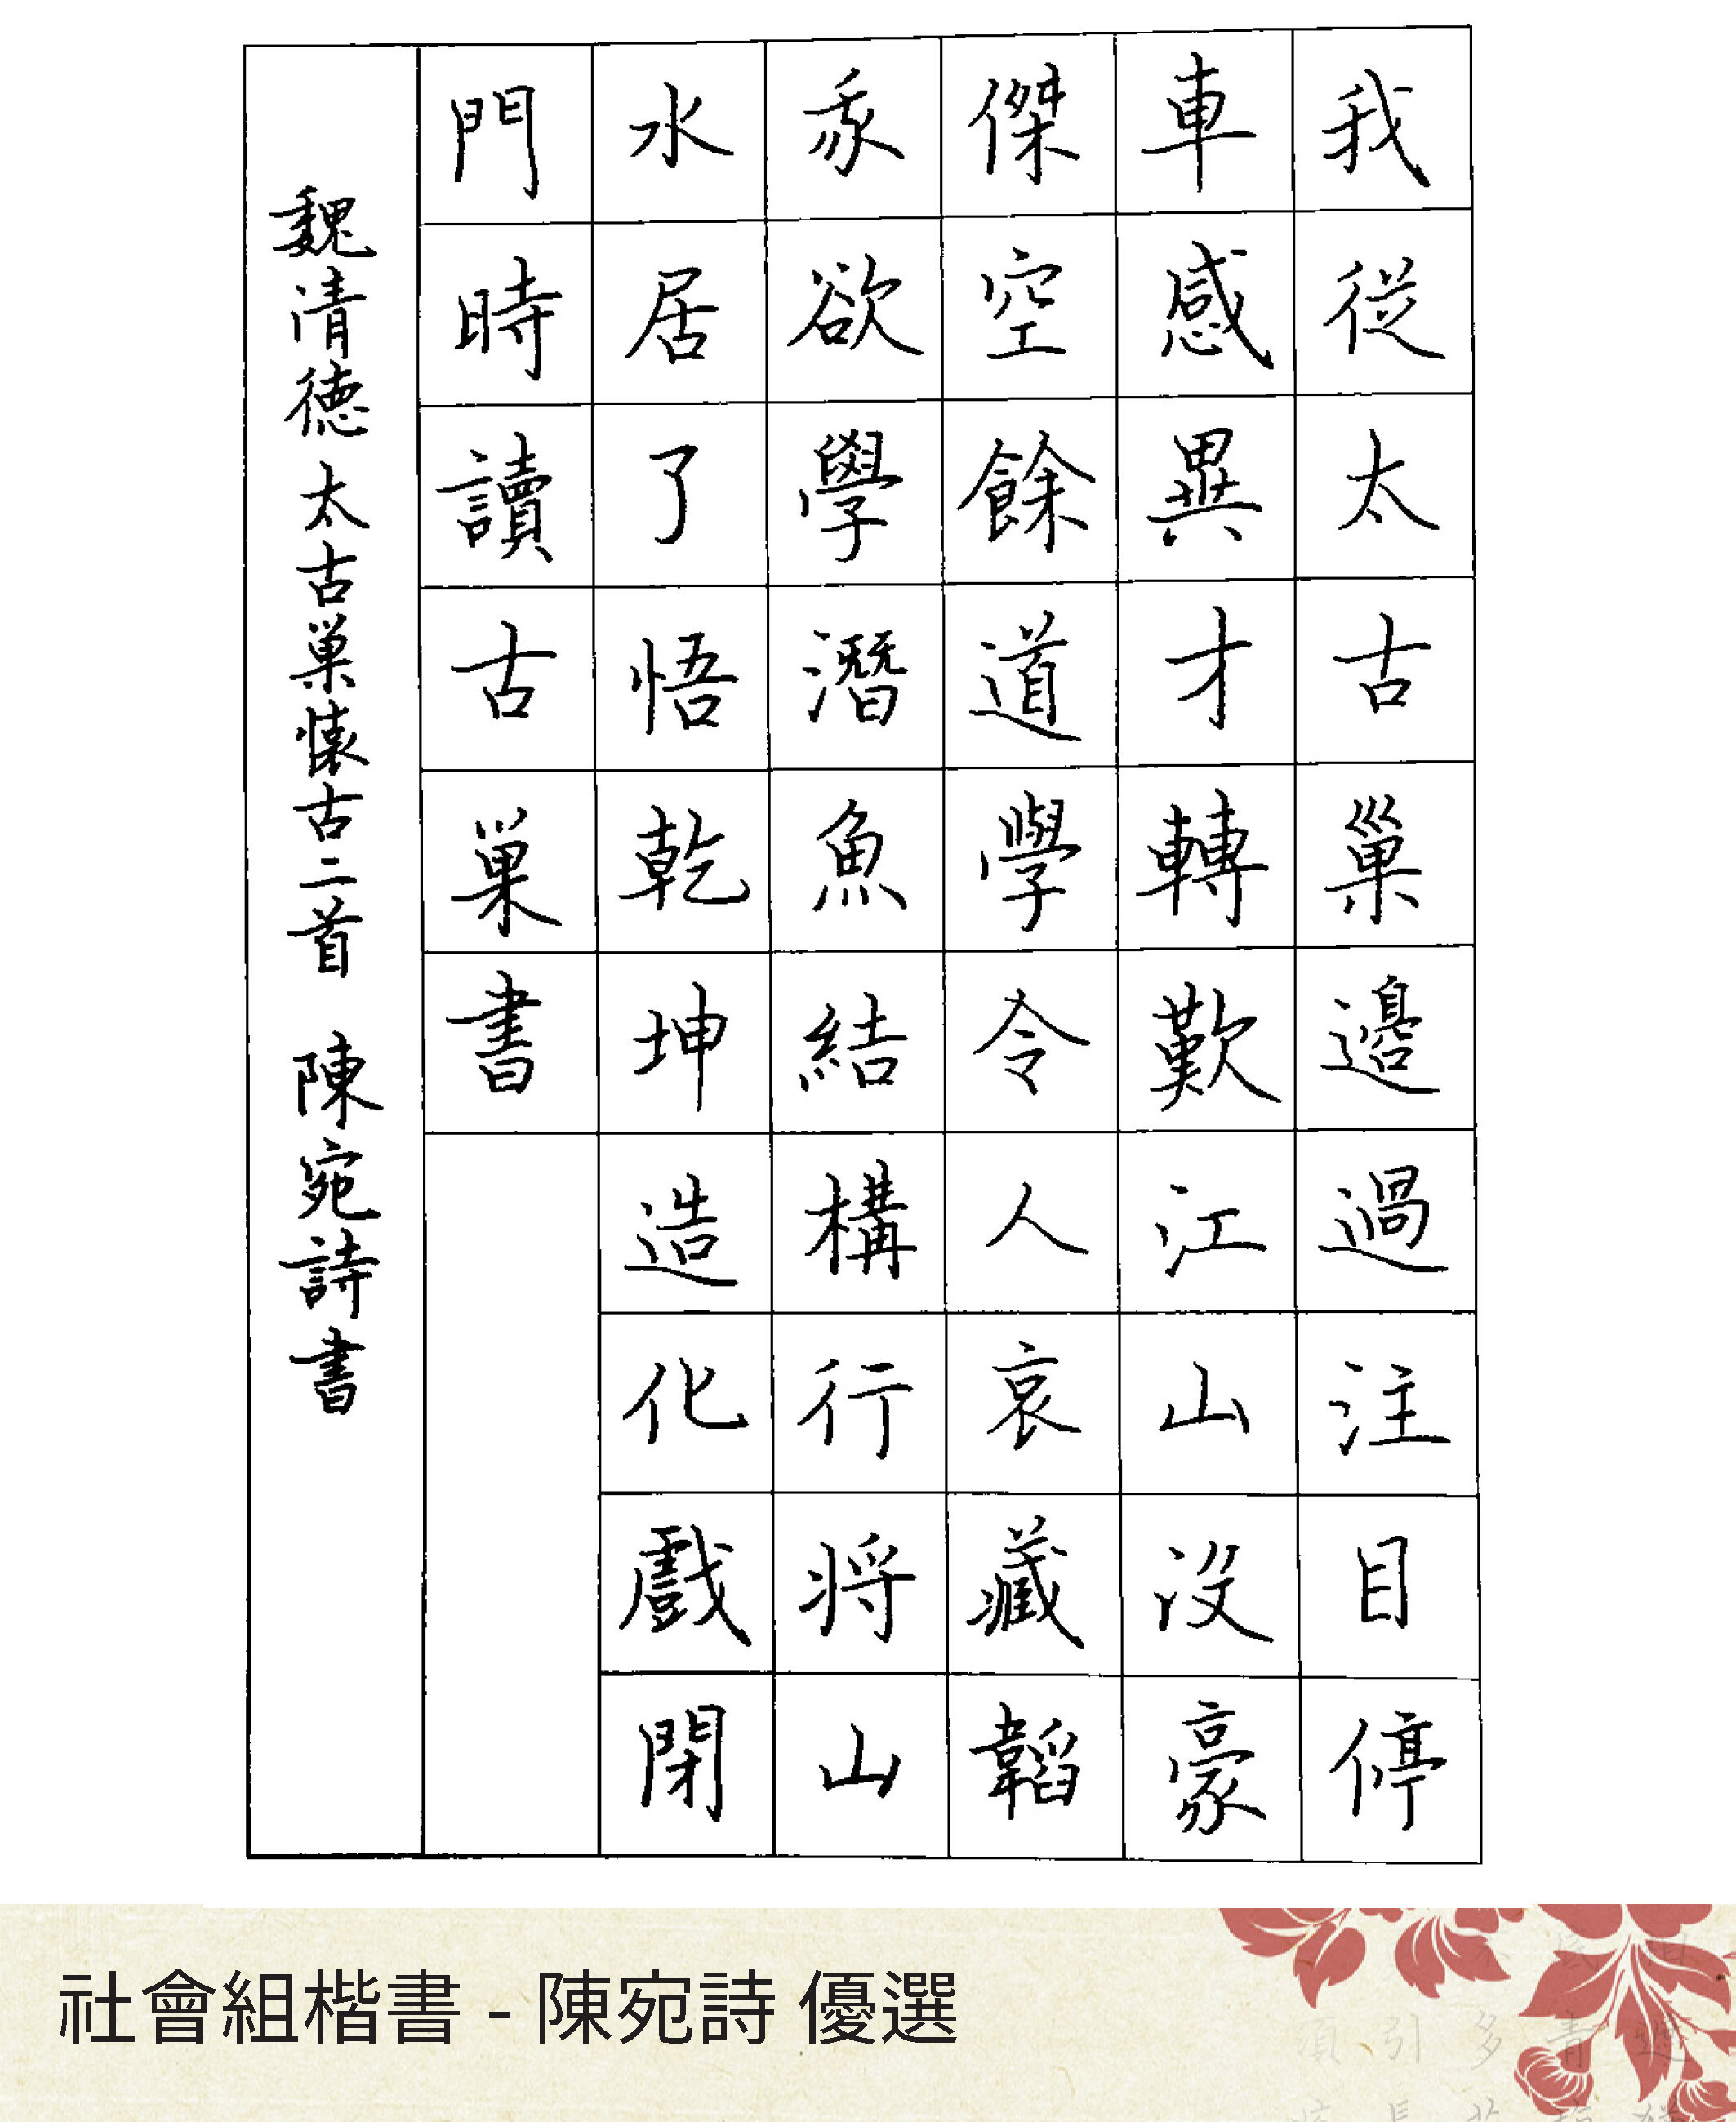 我從太古巢邊過注目停
車感異才轉歎江山沒豪
傑空餘道學令人哀藏韜
豕欲學潛魚結構行將山
水居了悟乾坤造化戲閉
門時讀古巢書
魏清德太古巢懷古二首 陳宛詩書
社會組楷書 - 陳宛詩 優選